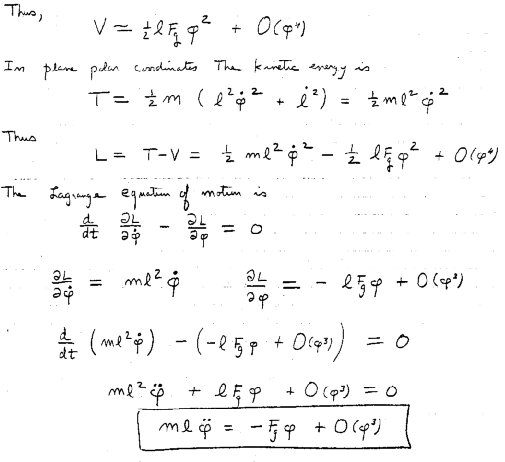 Thus,
V = ½ l F_g φ² + O(φ⁴)
In plane polar coordinates The kinetic energy is
T = ½ m ( l² φ̇ ² + l̇ ²) = ½ m l² φ̇ ²
Thus
L = T-V = ½ m l² φ̇ ² - ½ l F_g φ² + O(φ⁴)
The Lagrange equation of motion is
d/dt ∂L/∂φ̇ - ∂L/∂φ = 0
∂L/∂φ̇ = m l² φ̇ ∂L/∂φ = - l F_g φ + O(φ³)
d/dt (m l² φ̇) - (-l F_g φ + O(φ³)) = 0
m l² φ̈ + l F_g φ + O(φ³) = 0
m l φ̈ = - F_g φ + O(φ³)